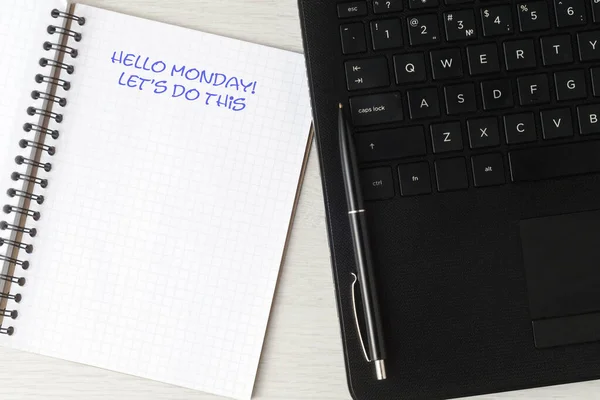 HELLO MONDAY!
LET'S DO THIS
esc
! 1 @ 2 # 3 № $ 4 ; % 5 ^ 6 :
Q W E R T Y
caps lock A S D F G H
Z X C V B
ctrl fn alt